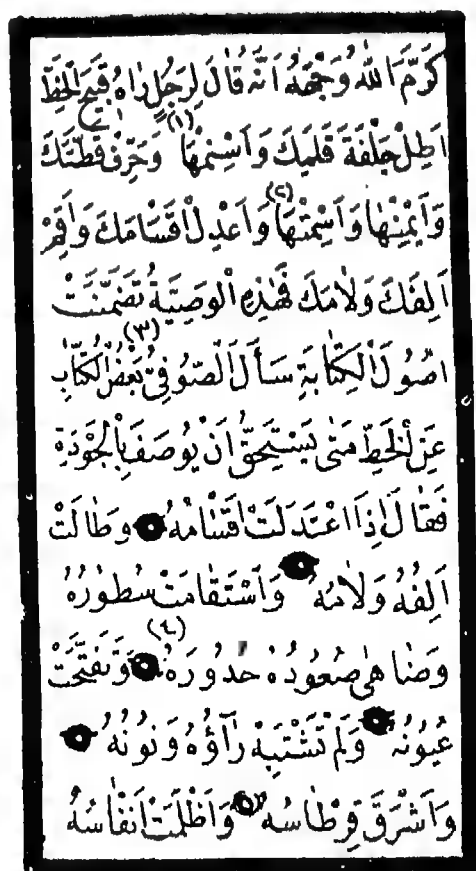 كَرَّمَ اللهُ وَجْهَهُ اَنَّهُ قَالَ لِرَجُلٍ رَاهُ قَبِيحَ الْخَطِّ
اَطِلْ جَلْفَةَ قَلَمِكَ وَاَسْمِنْهَا (١) وَحَرِّفْ قَطَّتَكَ
وَاَيْمِنْهَا وَاَسْمِتْهَا (٢) وَاَعْدِلْ اَقْسَامَكَ وَاَقِمْ
اَلِفَكَ وَلَامَكَ فَهٰذِهِ الْوَصِيَّةُ تَضَمَّنَتْ
اُصُولَ الْكِتَابَةِ (٣) سَأَلَ الصُّوفِيَّ بَعْضُ الْكُتَّابِ
عَنِ الْخَطِّ مَتٰى يَسْتَحِقُّ اَنْ يُوصَفَ بِالْجَوْدَةِ
فَقَالَ اِذَا اعْتَدَلَتْ اَقْسَامُهُ وَطَالَتْ
اَلِفُهُ وَلَامُهُ وَاَسْتَقَامَتْ سُطُورُهُ
وَضَاهٰى صُعُودُهُ حُدُورَهُ (٤) وَتَفَتَّحَتْ
عُيُونُهُ وَلَمْ تَشْتَبِهْ رَآؤُهُ وَنُونُهُ
وَاَشْرَقَ قِرْطَاسُهُ وَاَظْلَمَتْ اَنْقَاسُهُ